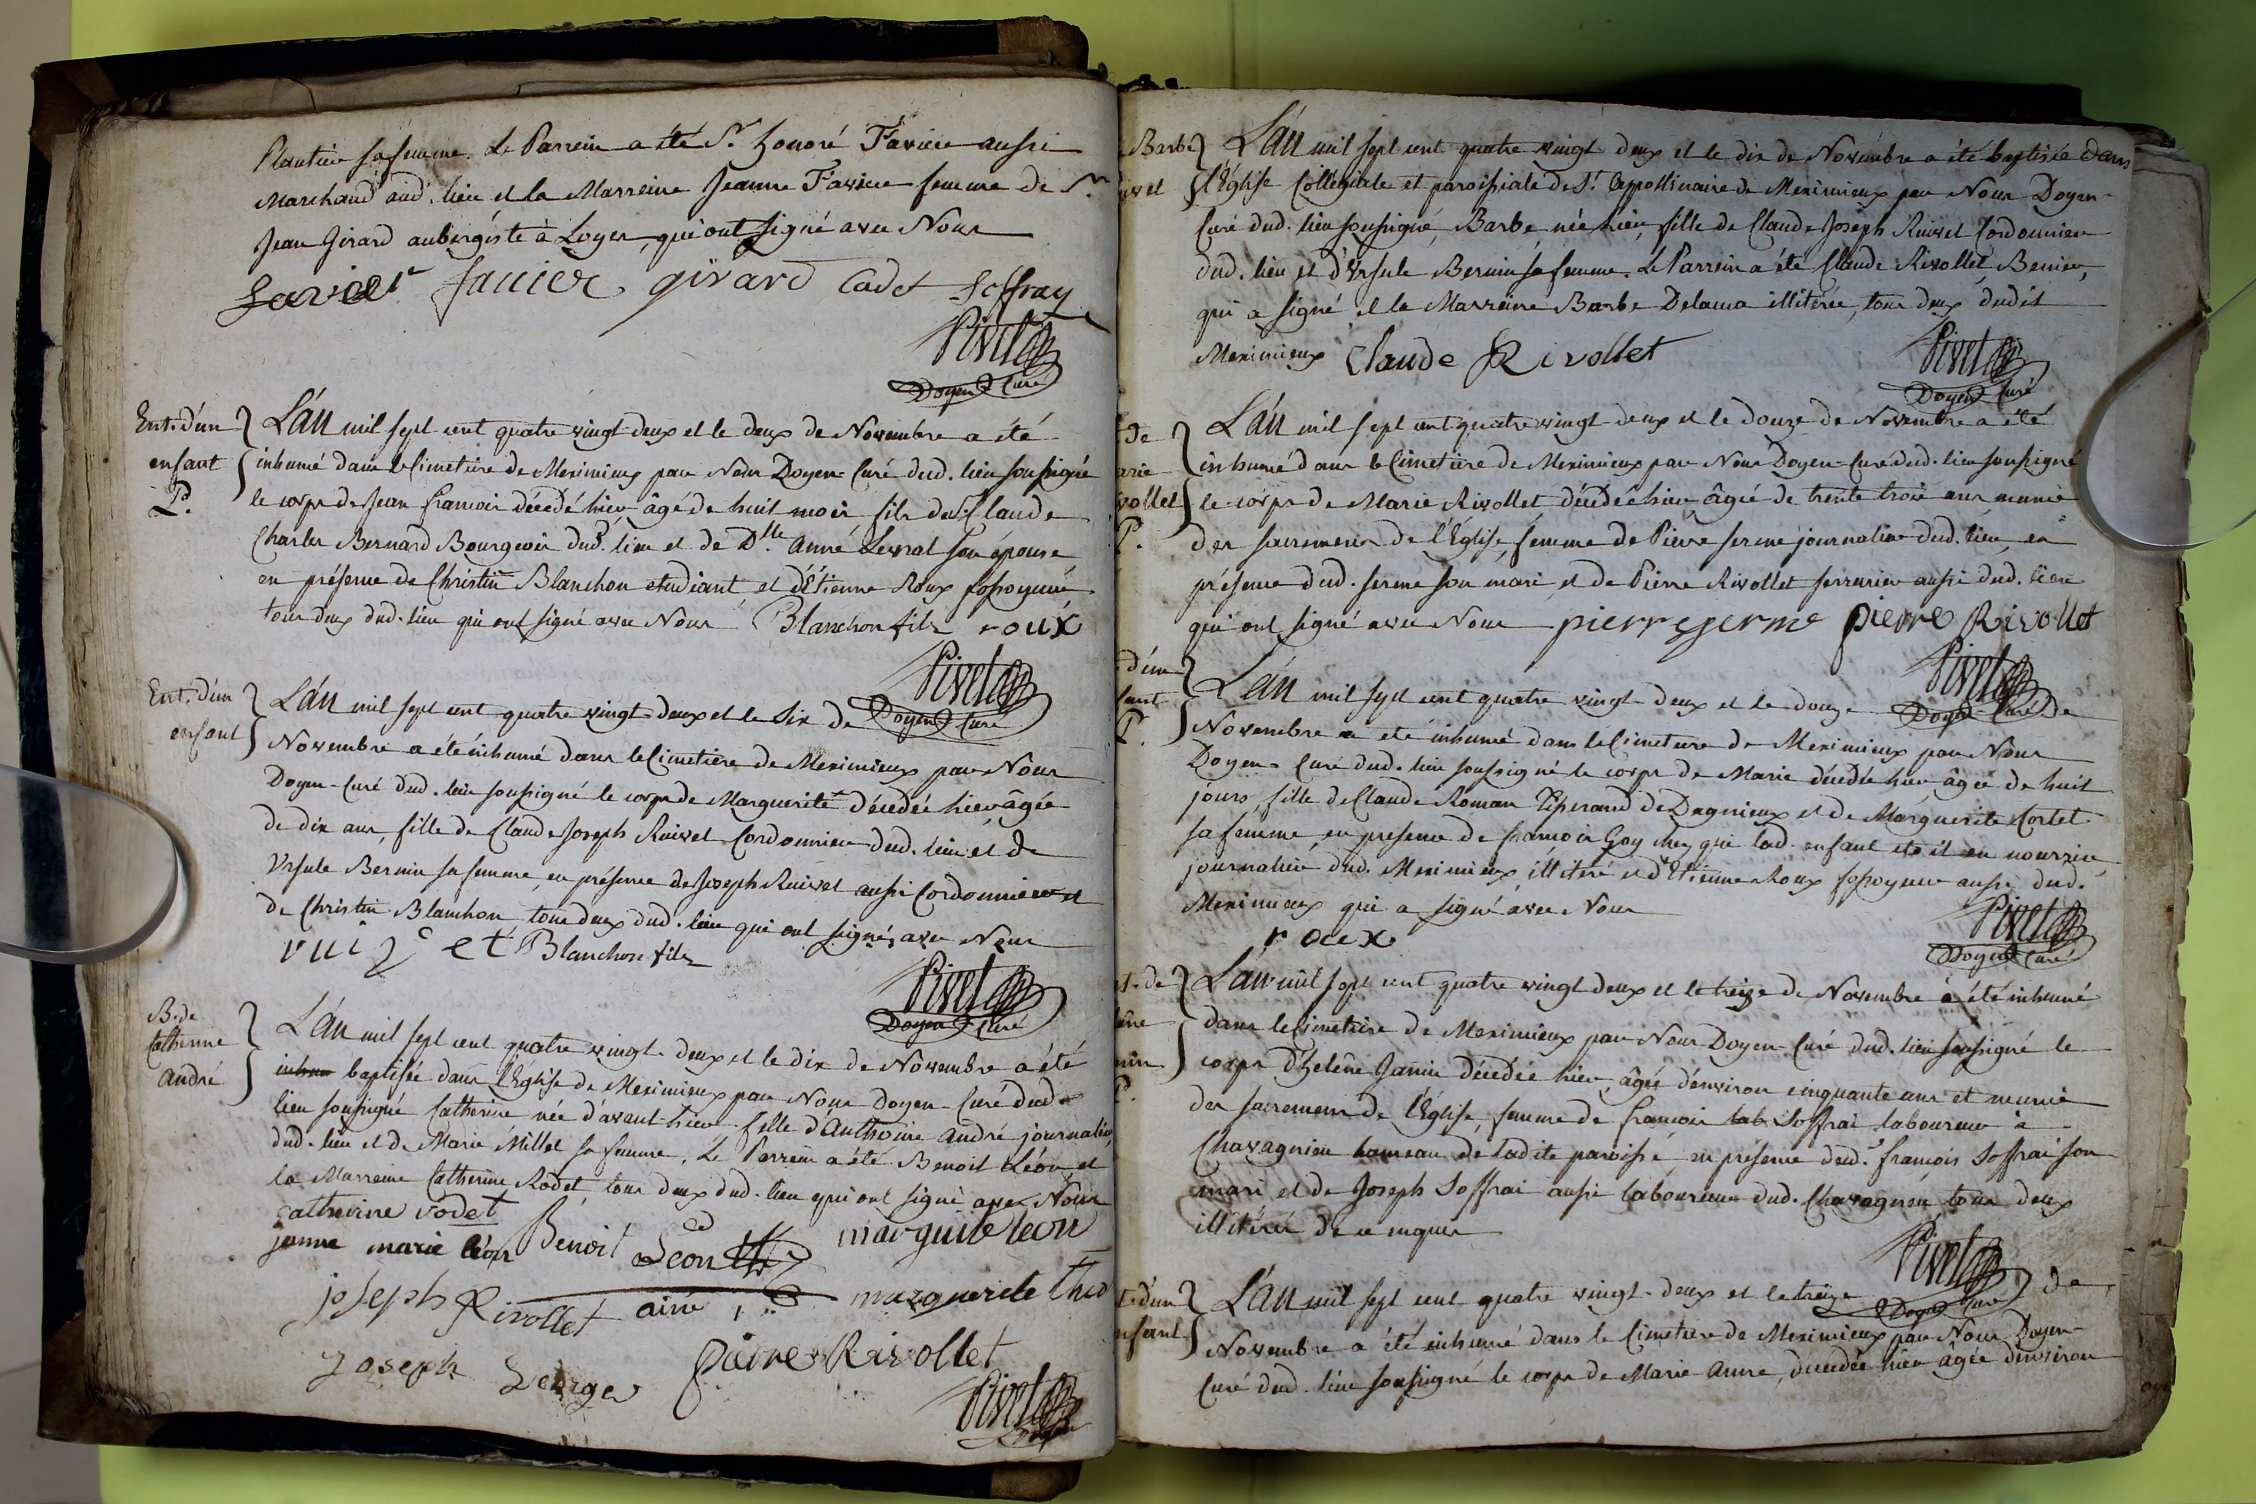 Plantier sa femme. Le Parrein a été Sr. honoré Favier aussi
Marchand aud. lieu et la Marreine Jeanne Favier femme de Sr.
Jean Girard aubergiste à Loyes, qui ont signé avec Nous
favier favier girard Cadet Soffray
Pivet
Doyen Curé
Ent. d'un
enfant
P.
L'an mil sept cent quatre vingt-deux et le deux de Novembre a été
inhumé dans le Cimetière de Meximieux par Nous Doyen-Curé dud. lieu soussigné
le corps de Jean françois décédé hier âgé de huit mois fils de Sr. Claude
Charles Bernard Bourgeois dud. lieu et de Dlle. anne Levrat son épouse
en présence de Christin Blanchon etudiant et d'Etienne Roux fossoyeur
tous deux dud. lieu qui ont signé avec Nous Blanchon fils roux
Pivet
Doyen Curé
Ent. d'un
enfant
L'an mil sept cent quatre vingt-deux et le Six de
Novembre a été inhumé dans le Cimetière de Meximieux par Nous
Doyen-Curé dud. lieu soussigné le corps de Marguerite décédée hier âgée
de dix ans, fille de Claude Joseph Ruivet Cordonnier dud. lieu et de
Ursule Bernin sa femme, en présence de Joseph Ruivet aussi Cordonnier et
de Christin Blanchon tous deux dud. lieu qui ont signés avec Nous
Blanchon fils
Pivet
Doyen Curé
B. de
Catherine
André
L'an mil sept cent quatre vingt-deux et le dix de Novembre a été
inhum baptisée dans l'Eglise de Meximieux par Nous Doyen-Curé dud.
lieu soussigné Catherine née d'avant-hier fille d'Anthoine André journalier
dud. lieu et de Marie Millet sa femme. Le Parrein a été Benoit Léon et
la Marreine Catherine Rodet, tous deux dud. lieu qui ont signé avec Nous
catherine rodet
janne marie léon Benoit Leon marguite leon
joseph Rivollet ainé marguerite
Joseph George pierre Rivollet
Pivet
Barbe
uivet
L'an mil sept cent quatre vingt-deux et le dix de Novembre a été baptisée dans
l'Église Collégiale et paroissiale de St. Appollinaire de Meximieux par Nous Doyen-
Curé dud. lieu soussigné, Barbe née hier, fille de Claude Joseph Ruivet Cordonnier
dud. lieu et d'Ursule Bernin sa femme. Le Parrein a été Claude Rivollet Bernin,
qui a signé et la Marreine Barbe Delama illiterée, tous deux dudit
Meximieux Claude Rivollet
Pivet
Doyen Curé
de
arie
vollet
P.
L'an mil sept cent quatre vingt-deux et le douze de Novembre a été
inhumé dans le Cimetière de Meximieux par Nous Doyen-Curé dud. lieu soussigné
le corps de Marie Rivollet décédée hier, âgée de trente trois ans, munie
des sacremens de l'Église, femme de Pierre ferme journalier dud. lieu, en
présence dud. ferme son mari, et de Pierre Rivollet serrurier aussi dud. lieu
qui ont signé avec Nous pierre ferme pierre Rivollet
Pivet
Doyen Curé
d'un
fant
P.
L'an mil sept cent quatre vingt-deux et le douze de
Novembre a été inhumé dans le Cimetière de Meximieux par Nous
Doyen-Curé dud. lieu soussigné le corps de Marie décédée hier âgée de huit
jours, fille de Claude Roman Tisserand de Dagnieux et de Marguerite Cortet
sa femme, en présence de françois Goy chez qui lad. enfant etoit en nourrice,
journalier dud. Meximieux, illiteré et d'Etienne Roux fossoyeur aussi dud.
Meximieux qui a signé avec Nous
roux
Pivet
Doyen Curé
t. de
laine
nin
P.
L'an mil sept cent quatre vingt deux et le treize de Novembre a été inhumé
dans le Cimetière de Meximieux par Nous Doyen-Curé dud. lieu soussigné le
corps d'helène Janin décédée hier, âgée d'environ cinquante ans et munie
des sacremens de l'Église, femme de françois lab Soffrai laboureur à
Chavagnieu hameau de ladite paroisse, en présence dud. françois Soffrai son
mari et de Joseph Soffrai aussi laboureur dud. Chavagnieu, tous deux
illiterés de ce enquis
Pivet
Doyen Curé
t. d'un
nfant
L'an mil sept cent quatre vingt-deux et le treize de
Novembre a été inhumé dans le Cimetière de Meximieux par Nous Doyen-
Curé dud. lieu soussigné le corps de Marie Anne, décédée hier âgée d'environ